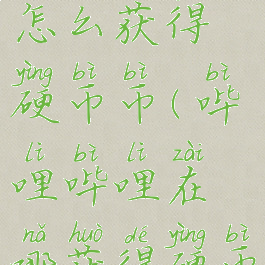 怎么获得
yìng bì bì bì
硬币币(哔
lǐ bì lǐ zài
哩哔哩在
nǎ huò dé yìng bì
哪获得硬币